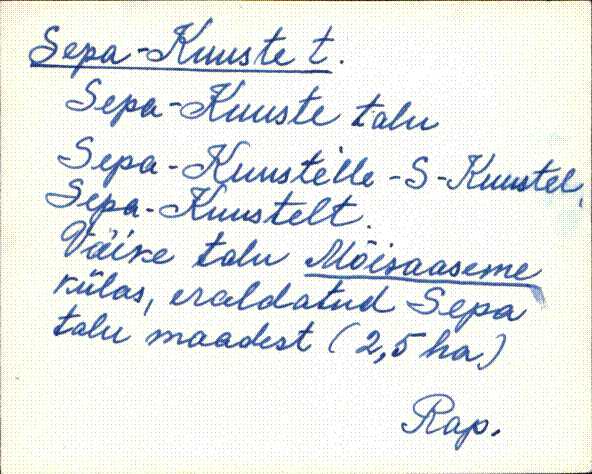 Sepa-Kuuste t.
Sepa-Kuuste talu
Sepa-Kuustelle -S-Kuustel,
Sepa-Kuustelt.
Väike talu Mõisaaseme
külas, eraldatud Sepa
talu maadest (2,5 ha)
Rap.